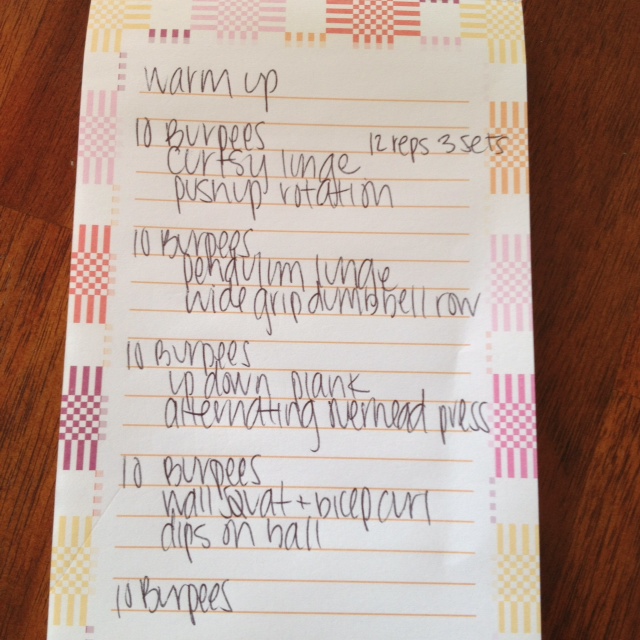 warm up
10 Burpees
curtsy lunge 12 reps 3 sets
pushup rotation
10 Burpees
pendulum lunge
wide grip dumbbell row
10 Burpees
up down plank
alternating overhead press
10 Burpees
wall squat + bicep curl
dips on ball
10 Burpees